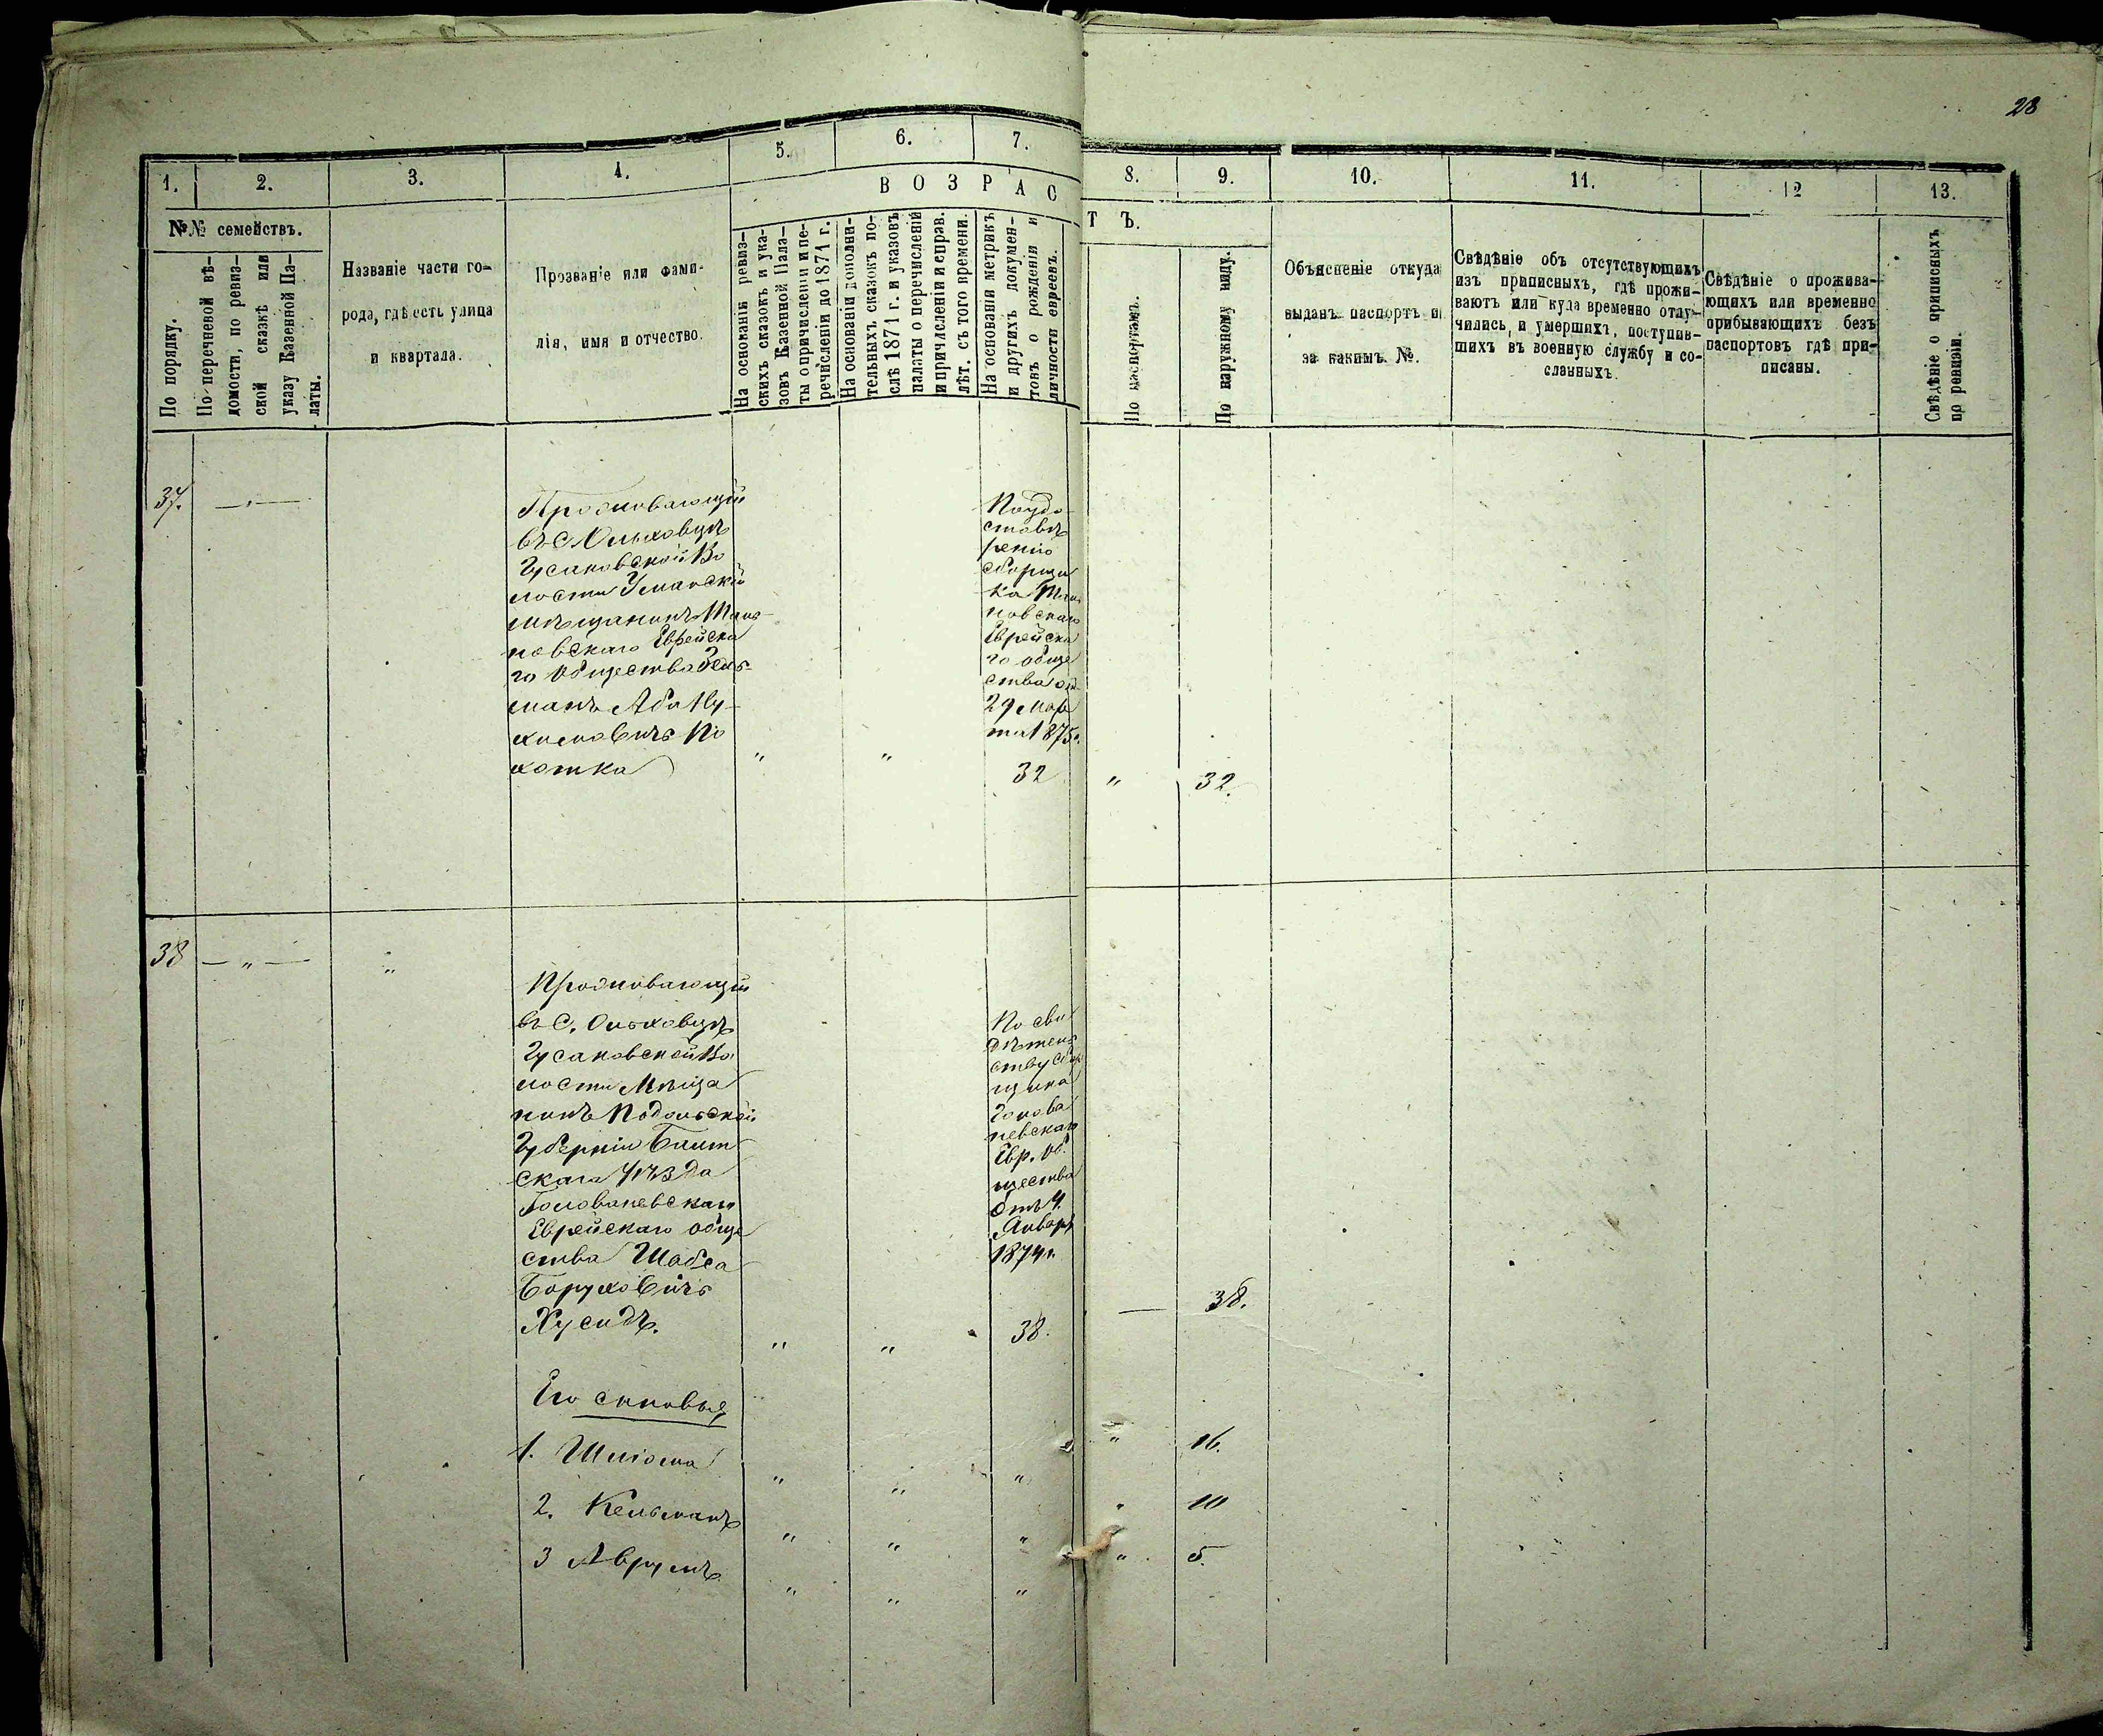 28
1. 2. 3. 4. 5. 6. 7. 8. 9. 10. 11. 12 13.
ВОЗРАСТЪ.
№№ семействъ.
По порядку.
По перечневой вѣ-
домости, по ревиз-
ской сказкѣ или
указу Казенной Па-
латы.
Названіе части го-
рода, гдѣ есть улица
и квартала.
Прозваніе или фами-
лія, имя и отчество.
На основаніи ревиз-
скихъ сказокъ и ука-
зовъ Казенной Пала-
ты о причисленіи и пе-
речисленіи до 1871 г.
На основаніи дополни-
тельныхъ сказокъ по-
слѣ 1871 г. и указовъ
палаты о перечисленіи
и причисленіи и справ.
лѣт. съ того времени.
На основаніи метрикъ
и другихъ докумен-
товъ о рожденіи и
личности евреевъ.
По паспортамъ.
По наружному виду.
Объясненіе откуда
выданъ паспортъ и
за какимъ №.
Свѣдѣніе объ отсутствующихъ
изъ приписныхъ, гдѣ прожи-
ваютъ или куда временно отлу-
чились, и умершихъ, поступив-
шихъ въ военную службу и со-
сланныхъ.
Свѣдѣніе о прожива-
ющихъ или временно
прибывающихъ безъ
паспортовъ гдѣ при-
писаны.
Свѣдѣніе о приписныхъ
по ревизіи.
37. — " —
Проживающій
въ С. Ольховцѣ
Гусаковской Во
лости Уманскій
мѣщанинъ
новскаго Еврейска
го Общества Зель-
манъ Аба Ну-
химовичъ По
хотка " "
По удо
стовѣ
ренію
сборщи
ка
новскаго
Еврейска
го обще
ства от
29 Мар
та 1875г.
32 " 32.
38 — " — "
Проживающій
въ С. Ольховцѣ
Гусаковской Во
лости Мѣща
нинъ Подольской
Губерніи Балт
скаго Уѣзда
Голованевскаго
Еврейскаго обще
ства Шабса
Боруховичъ
Хусидъ. " "
По сви
дѣтель
ству сбор
щика
Голова
невскаго
Евр. Об
щества
Отъ 4
Январ
1874г.
38. — 38.
Его сыновья
1. Шлiома " " " " 16.
2. Кельманъ " " " " 10
3 Аврумъ " " " " 5.